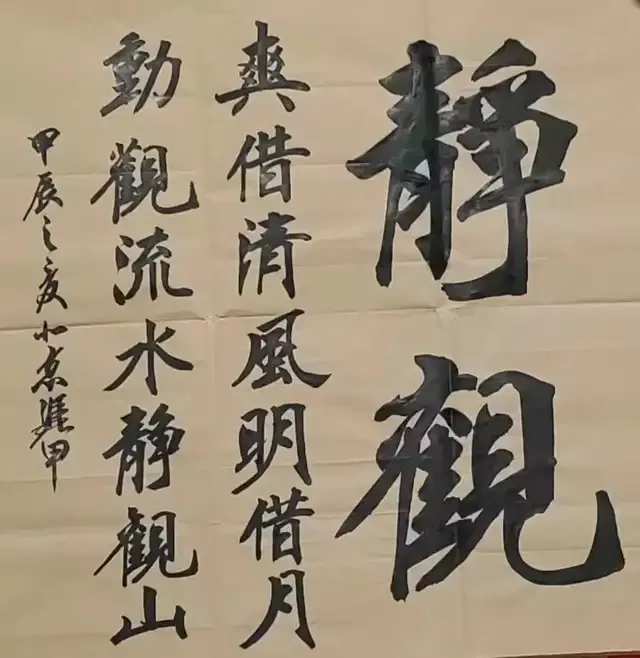 靜觀
爽借清風明借月
動觀流水靜觀山
甲辰之夏小京進甲